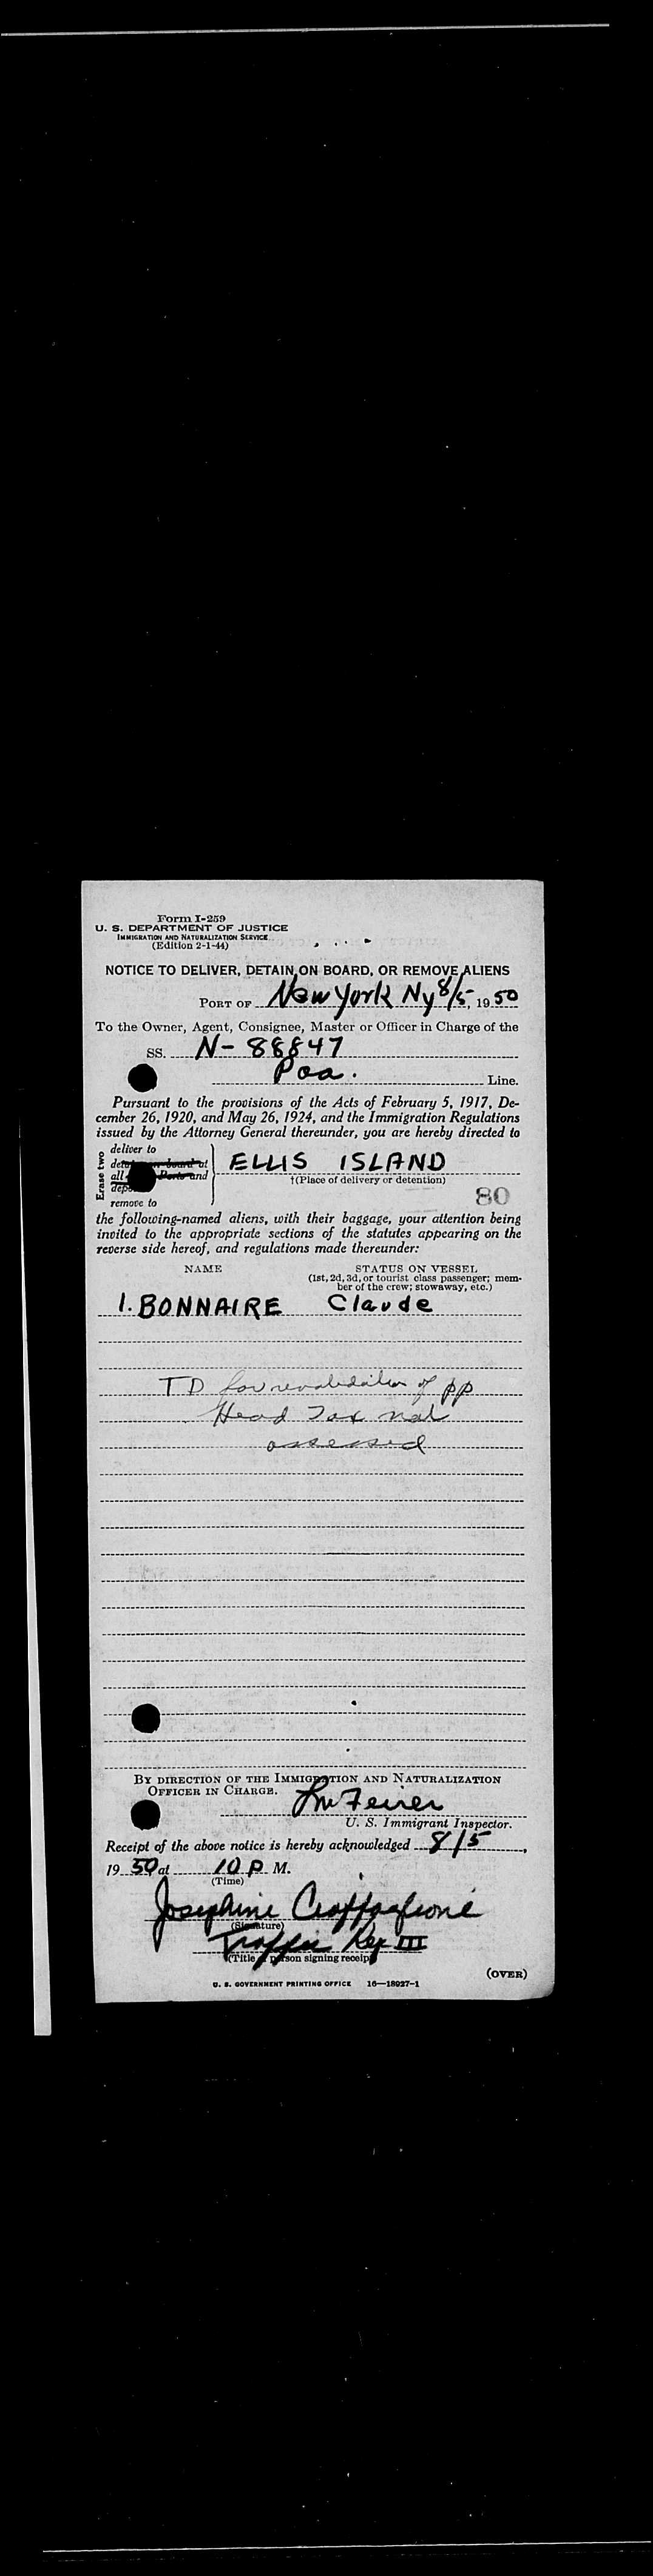 Form I-259
U. S. DEPARTMENT OF JUSTICE
IMMIGRATION AND NATURALIZATION SERVICE
(Edition 2-1-44)
NOTICE TO DELIVER, DETAIN ON BOARD, OR REMOVE ALIENS
PORT OF New York Ny 8/5, 1950
To the Owner, Agent, Consignee, Master or Officer in Charge of the
SS. N-88847
Paa. Line.
Pursuant to the provisions of the Acts of February 5, 1917, De-
cember 26, 1920, and May 26, 1924, and the Immigration Regulations
issued by the Attorney General thereunder, you are hereby directed to
Erase two
deliver to
on board at
all Ports and
remove to
ELLIS ISLAND
†(Place of delivery or detention)
80
the following-named aliens, with their baggage, your attention being
invited to the appropriate sections of the statutes appearing on the
reverse side hereof, and regulations made thereunder:
NAME STATUS ON VESSEL
(1st, 2d, 3d, or tourist class passenger; mem-
ber of the crew; stowaway, etc.)
1. BONNAIRE Claude
TD for revalidation of pp
Head Tax not
assessed
BY DIRECTION OF THE IMMIGRATION AND NATURALIZATION
OFFICER IN CHARGE.
U. S. Immigrant Inspector.
Receipt of the above notice is hereby acknowledged 8/5,
1950 at 10 P. M.
(Time)
Josephine
(Signature)
Traffic Rep III
(Title of person signing receipt)
(OVER)
U. S. GOVERNMENT PRINTING OFFICE 16—18927-1